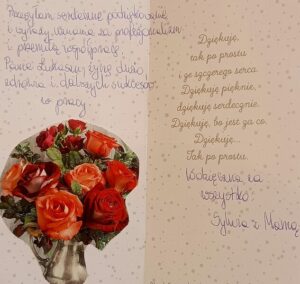 Przesyłam serdeczne podziękowania
i wyrazy uznania za profesjonalizm
i przemiłą współpracę.
Panie Łukaszu życzę dużo
zdrowia i dalszych sukcesów
w pracy.
Dziękuję,
tak po prostu
i ze szczerego serca.
Dziękuję pięknie,
dziękuję serdecznie.
Dziękuję, bo jest za co.
Dziękuję...
Tak po prostu.
Wdzięczna za
wszystko
Sylwia z Mamą